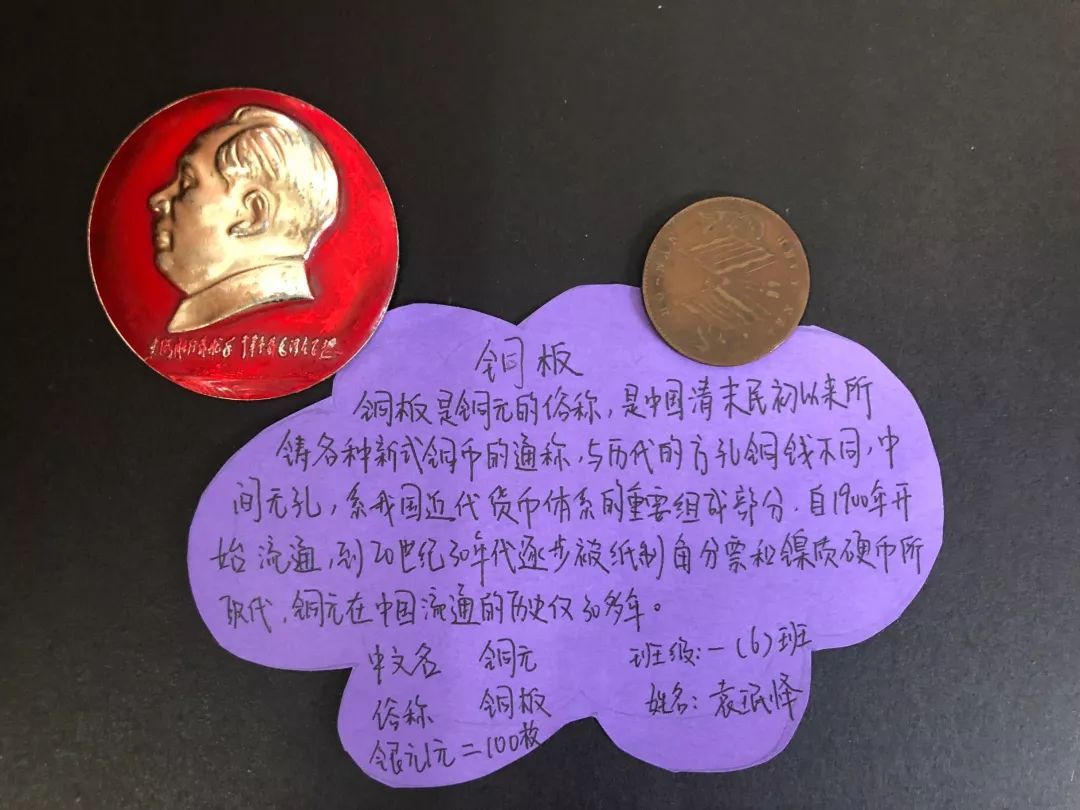 铜板
铜板是铜元的俗称，是中国清末民初以来所
铸各种新式铜币的通称，与历代的方孔铜钱不同，中
间无孔，系我国近代货币体系的重要组成部分．自1900年开
始流通，到20世纪30年代逐步被纸制角分票和镍质硬币所
取代，铜元在中国流通的历史仅30多年。
中文名 铜元
俗称 铜板
银元1元=100枚
班级：一（6）班
姓名：袁珉怿
HO-NAN